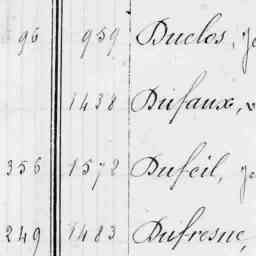 96 959 Duclos,
1438 Dufaux,
356 1572 Duféil,
249 1483 Dufresne,